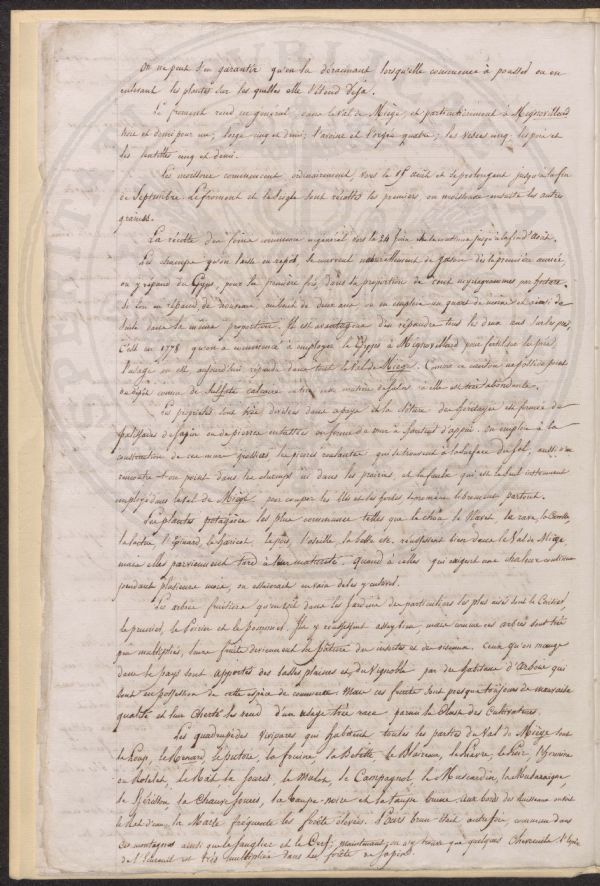 On ne peut s'en garantir qu'en la déracinant lorsqu'elle commence à pousser ou en
enlevant les plantes sur les quelles elle s'étend déjà.
Le froment rend en general, dans le Val de Miège, et particulièrement à Mignovillard
trois et demi pour un; l'orge cinq et demi; l'avoine et quatre; les vesces cinq; les pois et
les lentilles cinq et demi.
Les moissons commencent ordinairement vers le 15 août et se prolongent jusqu'à la fin
de Septembre. Le froment et le seigle sont récoltés les premiers on moissonne ensuite les autres
graines.
La récolte des foins commence en general vers le 24 Juin et se continue jusqu'à la fin d'août.
Les champs qu'on laisse en repos se couvrent naturellement de gazon dès la première année
on y répand du Gyps, pour la première fois, dans la proportion de cent myriagrammes par hectare.
on en répand de nouveau au bout de deux ans ou on emploie un quart de moins et ainsi de
suite dans la même proportion. Il est avantageux d'en répandre tous les deux ans sur les prés.
C'est en 1778 qu'on a commencé à employer le Gyps à Mignovillard pour fertiliser les prés,
l'usage en est aujourd'hui répandu dans tout le Val de Miège. Comme ce canton ne possède point
de sulfate calcaire on tire cette matière de Salins où elle est très abondante.
Les propriétés sont très divisées dans ce pays et la clôture des héritages est formée de
palissades de sapin ou de pierres entassées en forme de mur à hauteur d'appui. On emploie à la
construction de ces murs grossiers les pierres roulantes qui se trouvent à la surface du sol, aussi n'en
rencontre-t-on point dans les champs ni dans les prairies et la faulx qui est le seul instrument
employé dans le Val de Miège, pour couper les blés et les herbes se promène librement partout.
Les plantes potagères les plus communes telles que le chou, le navet, la rave, la Carotte,
la laitue, l'épinard, le haricot, le pois, l'oseille, la bette etc. réussissent bien dans le Val de Miège
mais elles parviennent tard à leur maturité. Quand à celles qui exigent une chaleur continue
pendant plusieurs mois, on essaierait en vain de les y cultiver.
Les arbres fruitiers qu'on voit dans les Jardins des particuliers les plus aisés sont le Cerisier,
le prunier, le Poirier et le pommier. Ils y réussissent assez bien, mais comme ces arbres sont très
peu multipliés, leurs fruits deviennent la pâture des insectes et des oiseaux. Ceux qu'on mange
dans le pays sont apportés des basses plaines et du Vignoble par des habitans d'Arbois qui
sont en possession de cette espèce de commerce. Mais ces fruits sont presque toujours de mauvaise
qualité et leur cherté les rend d'un usage très rare parmi la Classe des Cultivateurs.
Les quadrupèdes vivipares qui habitent toutes les parties du Val de Miège sont
le Loup, le Renard, le putois, la fouine, la Belette, le Blaireau, le Lièvre, le Loir, l'hermine
ou Roselet, le Rat, la souris, le Mulot, le Campagnol, le Muscardin, la Musaraigne,
le Hérisson, la Chauve souris, la taupe noire et la taupe brune. Aux bords des ruisseaux on voit
le Rat d'eau, la Marte fréquente les forêts élevées. L'ours brun était autrefois commun dans
ces montagnes ainsi que le sanglier et le Cerf; maintenant, on n'y trouve que quelques Chevreuils. L'espèce
de l'Ecureuil est très multipliée dans les forêts de sapin.